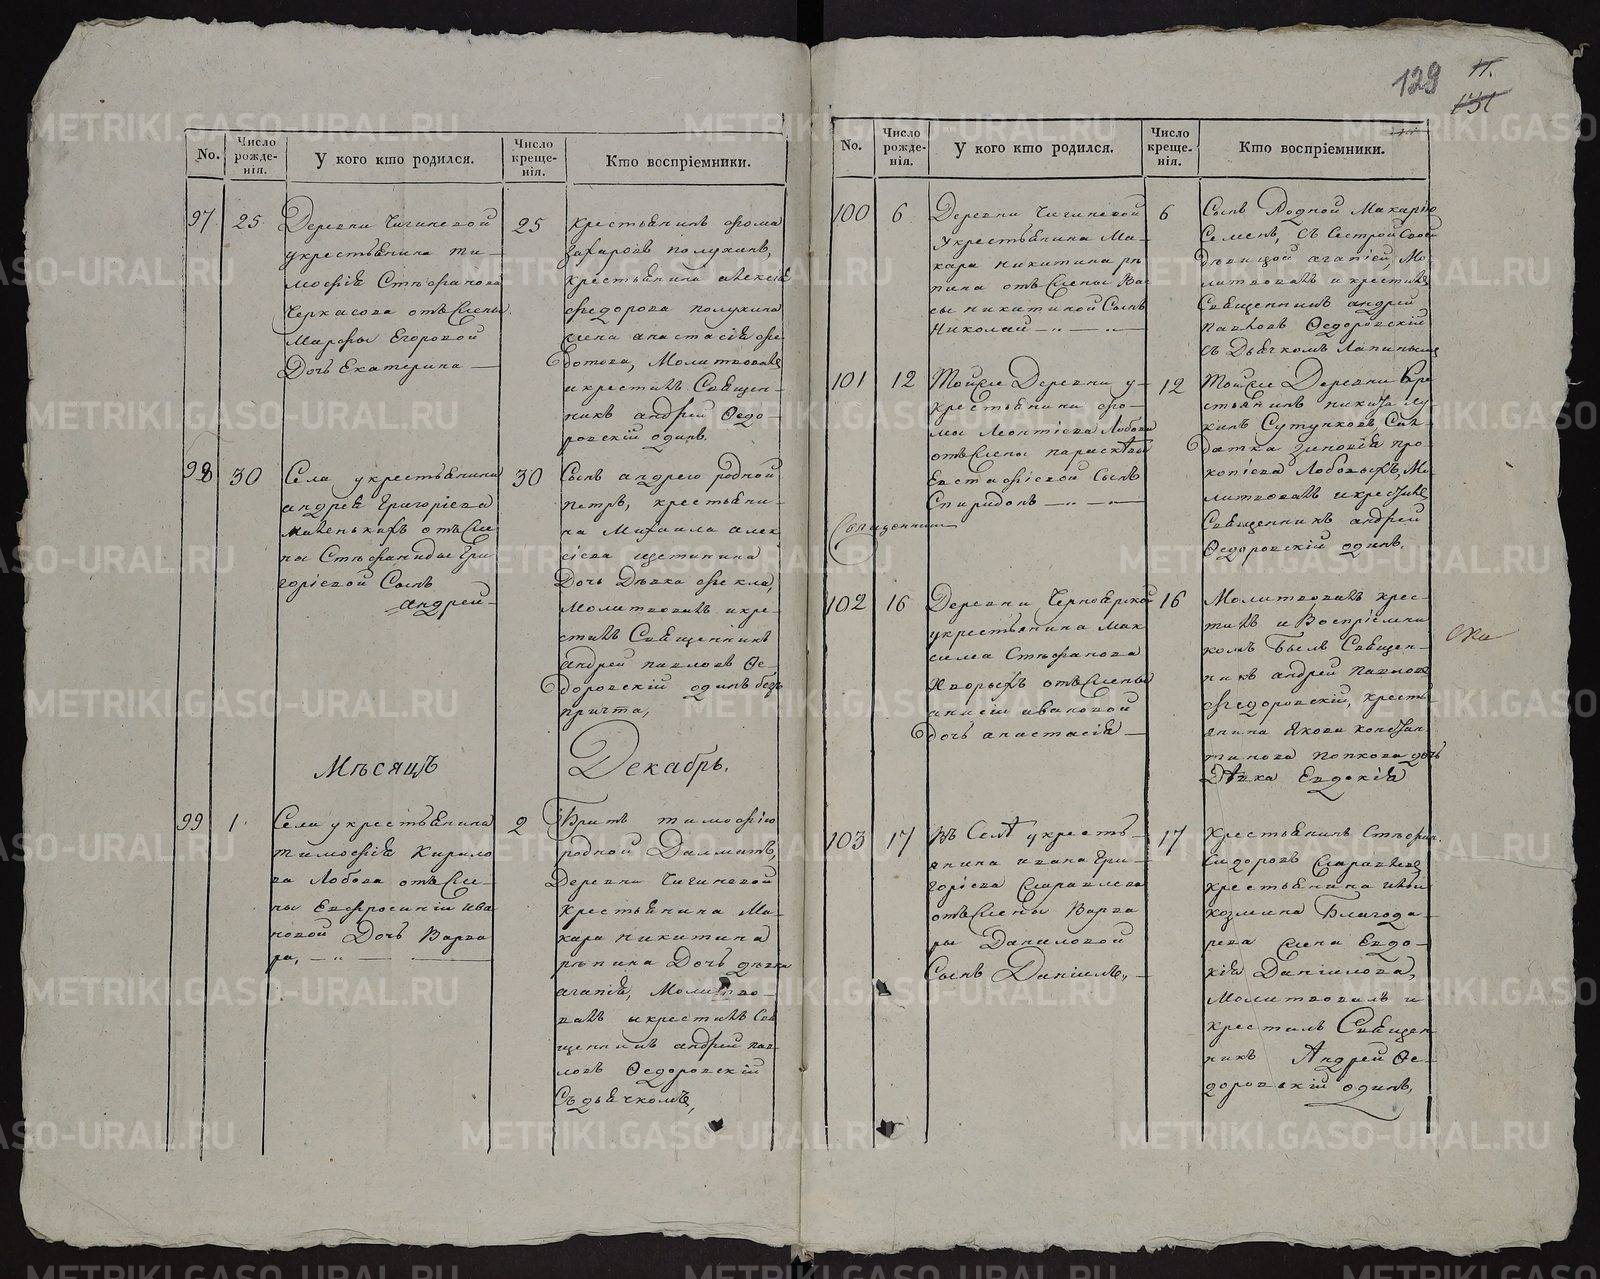 129
11.
151
No.
Число рожде-нія.
У кого кто родился.
Число креще-нія.
Кто воспріемники.
97
25
Деревни Чигиневой
у крестьянина Ти-
мофѣя Стефанова
Черкасова отъ жены
Марфы Егоровой
Дочь Екатерина
25
крестьянинъ фома
захаровъ полухинъ,
крестьянина алексѣя
федорова полухина
жена анастасія фе-
дотова, Молитвовалъ
и крестилъ Священ-
никъ андрей Ѳедо-
ровскій одинъ.
98
30
Села у крестьянина
андрея Григорієва
маненькихъ отъ же-
ны Стефаниды Гри-
горіевой Сынъ
андрей
30
Сынъ андрею родной
петръ, крестьяни-
на Михаила алек-
сіева щетинина
Дочь Дѣвка фекла,
Молитвовалъ и кре-
стилъ Священникъ
андрей павловъ Ѳе-
доровскій одинъ безъ
причта,
Мѣсяцъ
Декабрь.
99
1
Села у крестьянина
тимофѣя Кирило-
ва Лобова отъ же-
ны Евфросиніи ива
новой Дочь Варва
ра,
2
Братъ тимофѣю
родной Далматъ,
Деревни Чигиневой
крестьянина Ма-
кара никитина
рѣпина Дочь дѣвка
агапія, Молитво-
валъ и крестилъ Свя
щенникъ андрей пав-
ловъ Ѳедоровскій
Съ дьячкомъ,
No.
Число рожде-нія.
У кого кто родился.
Число креще-нія.
Кто воспріемники.
100
6
Деревни Чигиневой
у крестьянина Ма-
кара никитина рѣ
пина отъ жены Ва
сы никитиной Сынъ
Николай
6
Сынъ Родной Макарію
Семенъ, съ Сестрой Своей
дѣвицой агапіей, Мо-
литвовалъ и крестилъ
Священникъ андрей
павловъ Ѳедоровскій
съ Дьячкомъ Лапинымъ
101
12
Той же Деревни у
крестьянина фо-
мы Леонтіева Лобова
отъ жены парасковьи
Евстафіевой Сынъ
Спиридонъ
Священникъ
12
Той же Деревни Кре
стьянинъ никита лу
кинъ Сутучковъ, Сол-
датка зиновія про-
копіева Лобовыхъ, Мо
литвовалъ и крестилъ
Священникъ андрей
Ѳедоровскій одинъ.
102
16
Деревни Черноярской
у крестьянина Мак
сима Стефанова
Яворыхъ отъ жены
анисіи ивановой
дочь анастасія
16
Молитвовалъ крес-
тилъ и Воспріемни
комъ былъ Священ-
никъ андрей павловъ
федоровскій, кресть
янина Якова констан
тинова попкова дочь
Дѣвка Евдокія
103
17
Въ Селѣ у кресть-
янина ивана Гри-
горіева Журавлева
отъ жены Варва
ры Даниловой
Сынъ Даніилъ,
17
Крестьянинъ Стефан
Сидоровъ Журавлевъ
крестьянина ильи
козмина Благода-
рева жена Евдо-
кія Даніилова,
Молитвовалъ и
крестилъ Священ
никъ Андрей Ѳе-
доровскій одинъ,